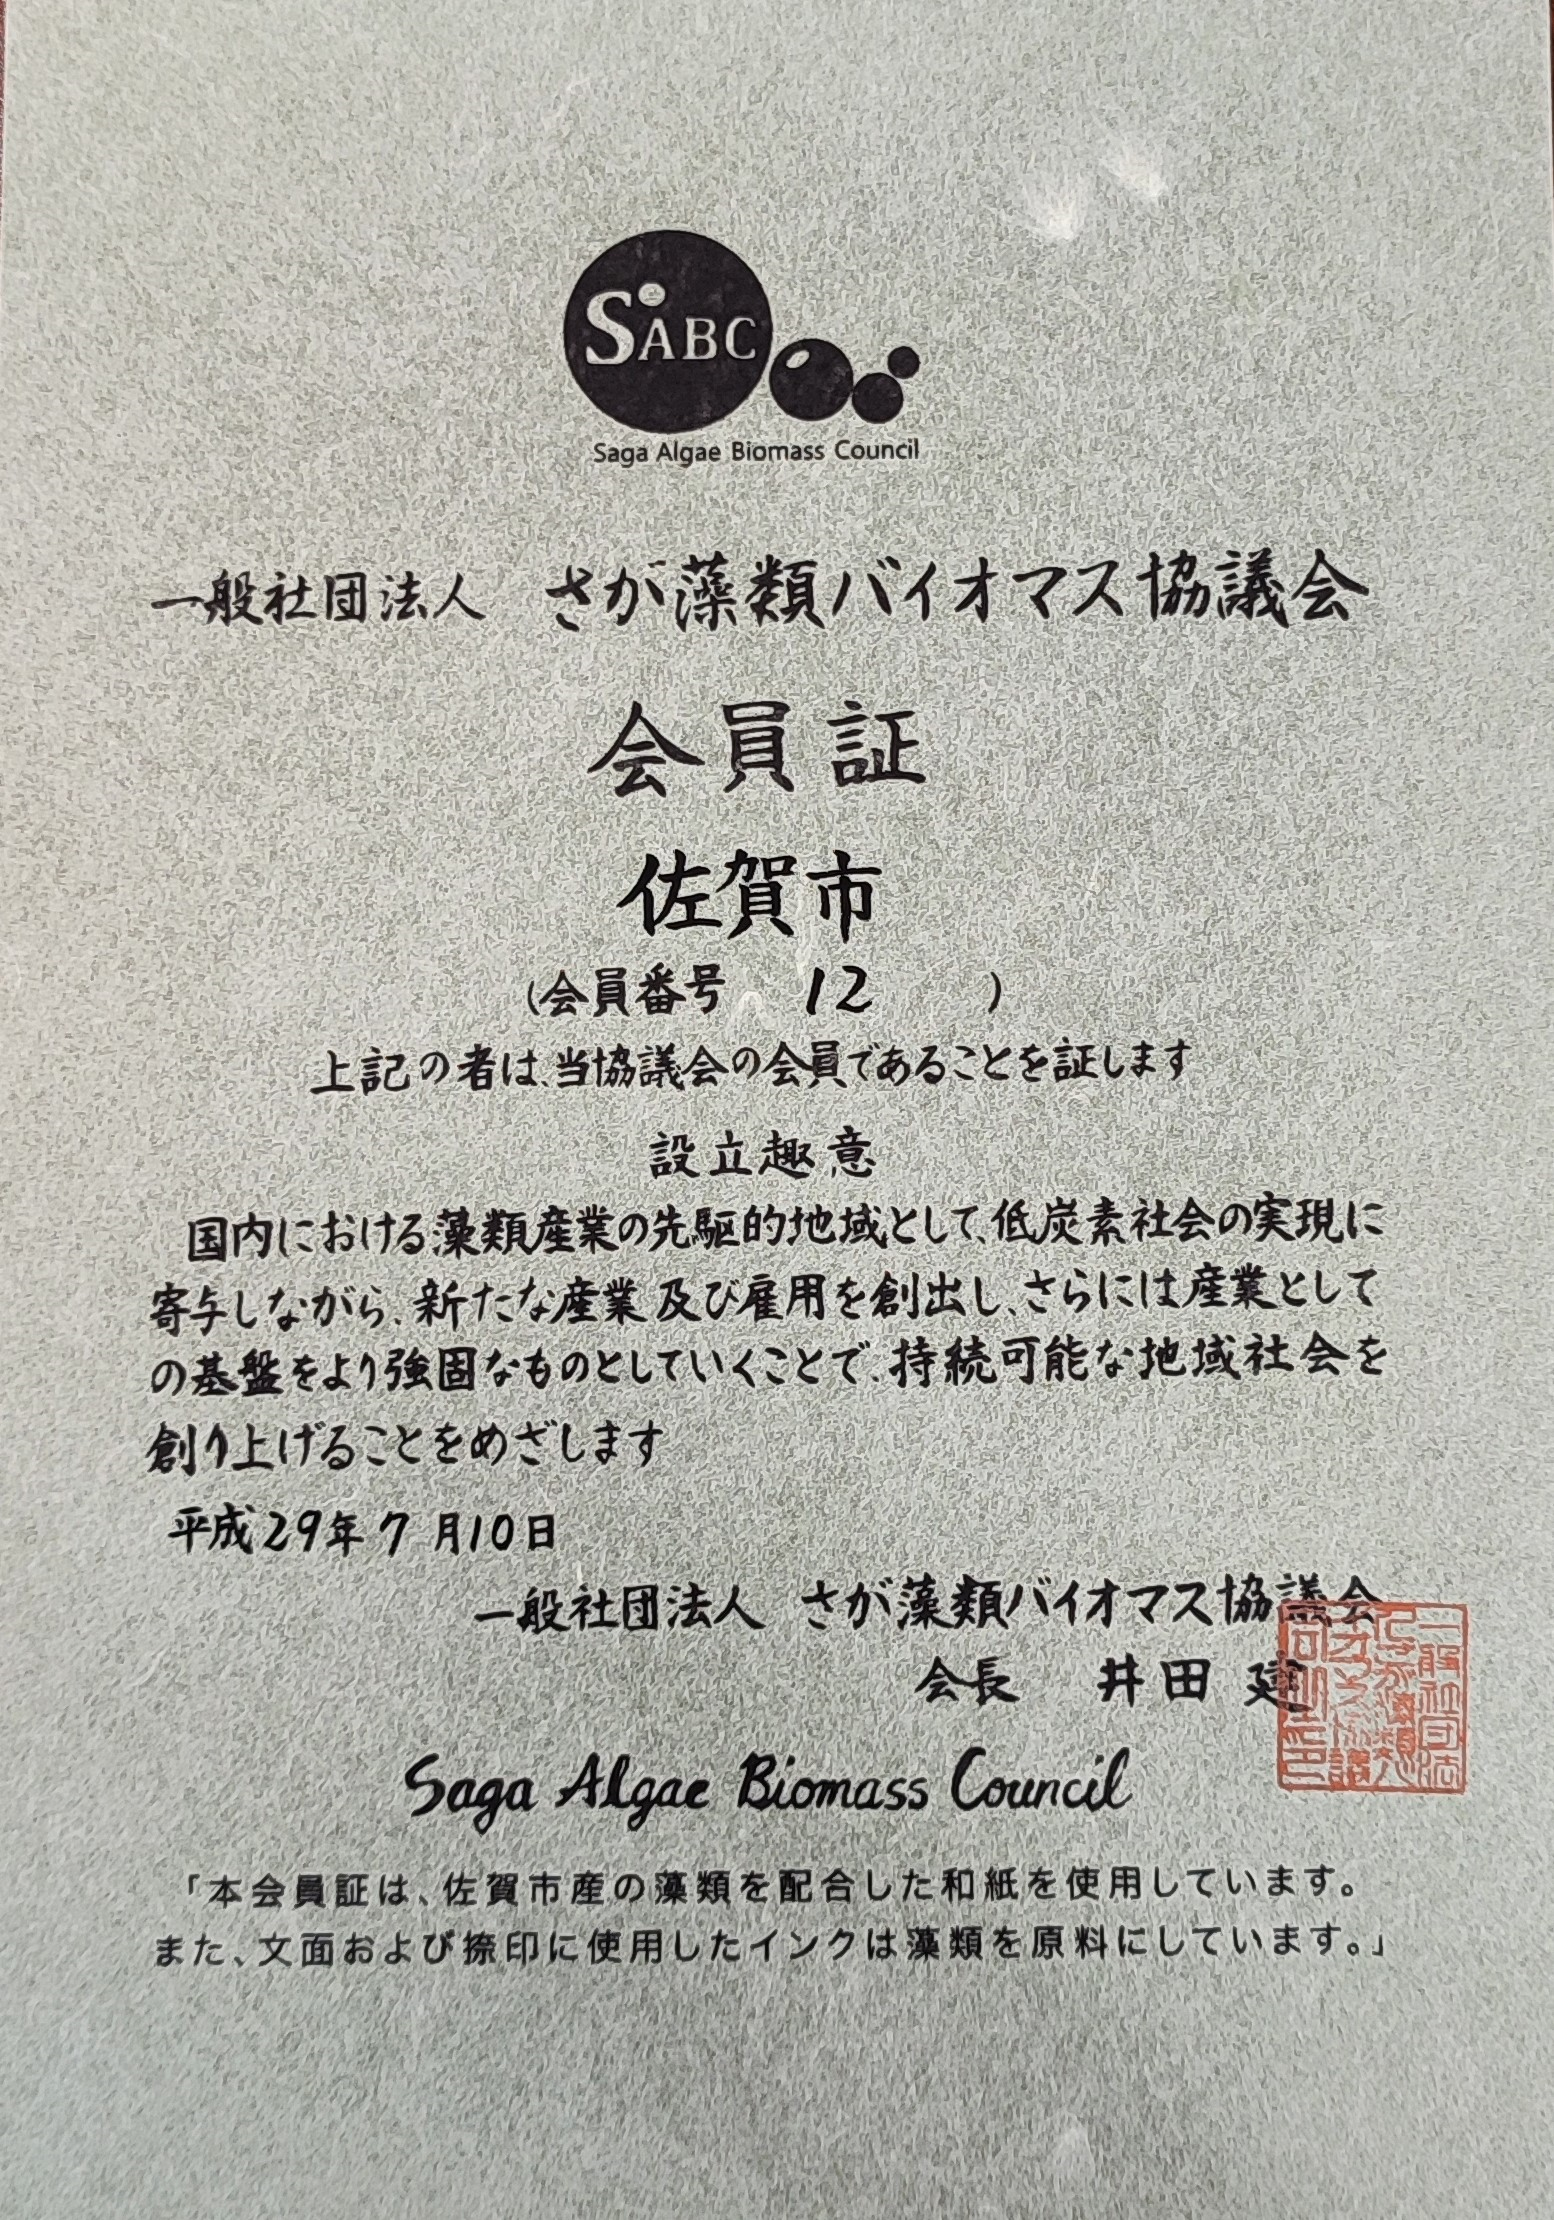 SABC
Saga Algae Biomass Council
一般社団法人 さが藻類バイオマス協議会
会員証
佐賀市
(会員番号 12 )
上記の者は、当協議会の会員であることを証します
設立趣意
国内における藻類産業の先駆的地域として、低炭素社会の実現に
寄与しながら、新たな産業及び雇用を創出し、さらには産業として
の基盤をより強固なものとしていくことで、持続可能な地域社会を
創り上げることをめざします
平成29年7月10日
一般社団法人 さが藻類バイオマス協議会
会長 井田 建
Saga Algae Biomass Council
「本会員証は、佐賀市産の藻類を配合した和紙を使用しています。
また、文面および捺印に使用したインクは藻類を原料にしています。」